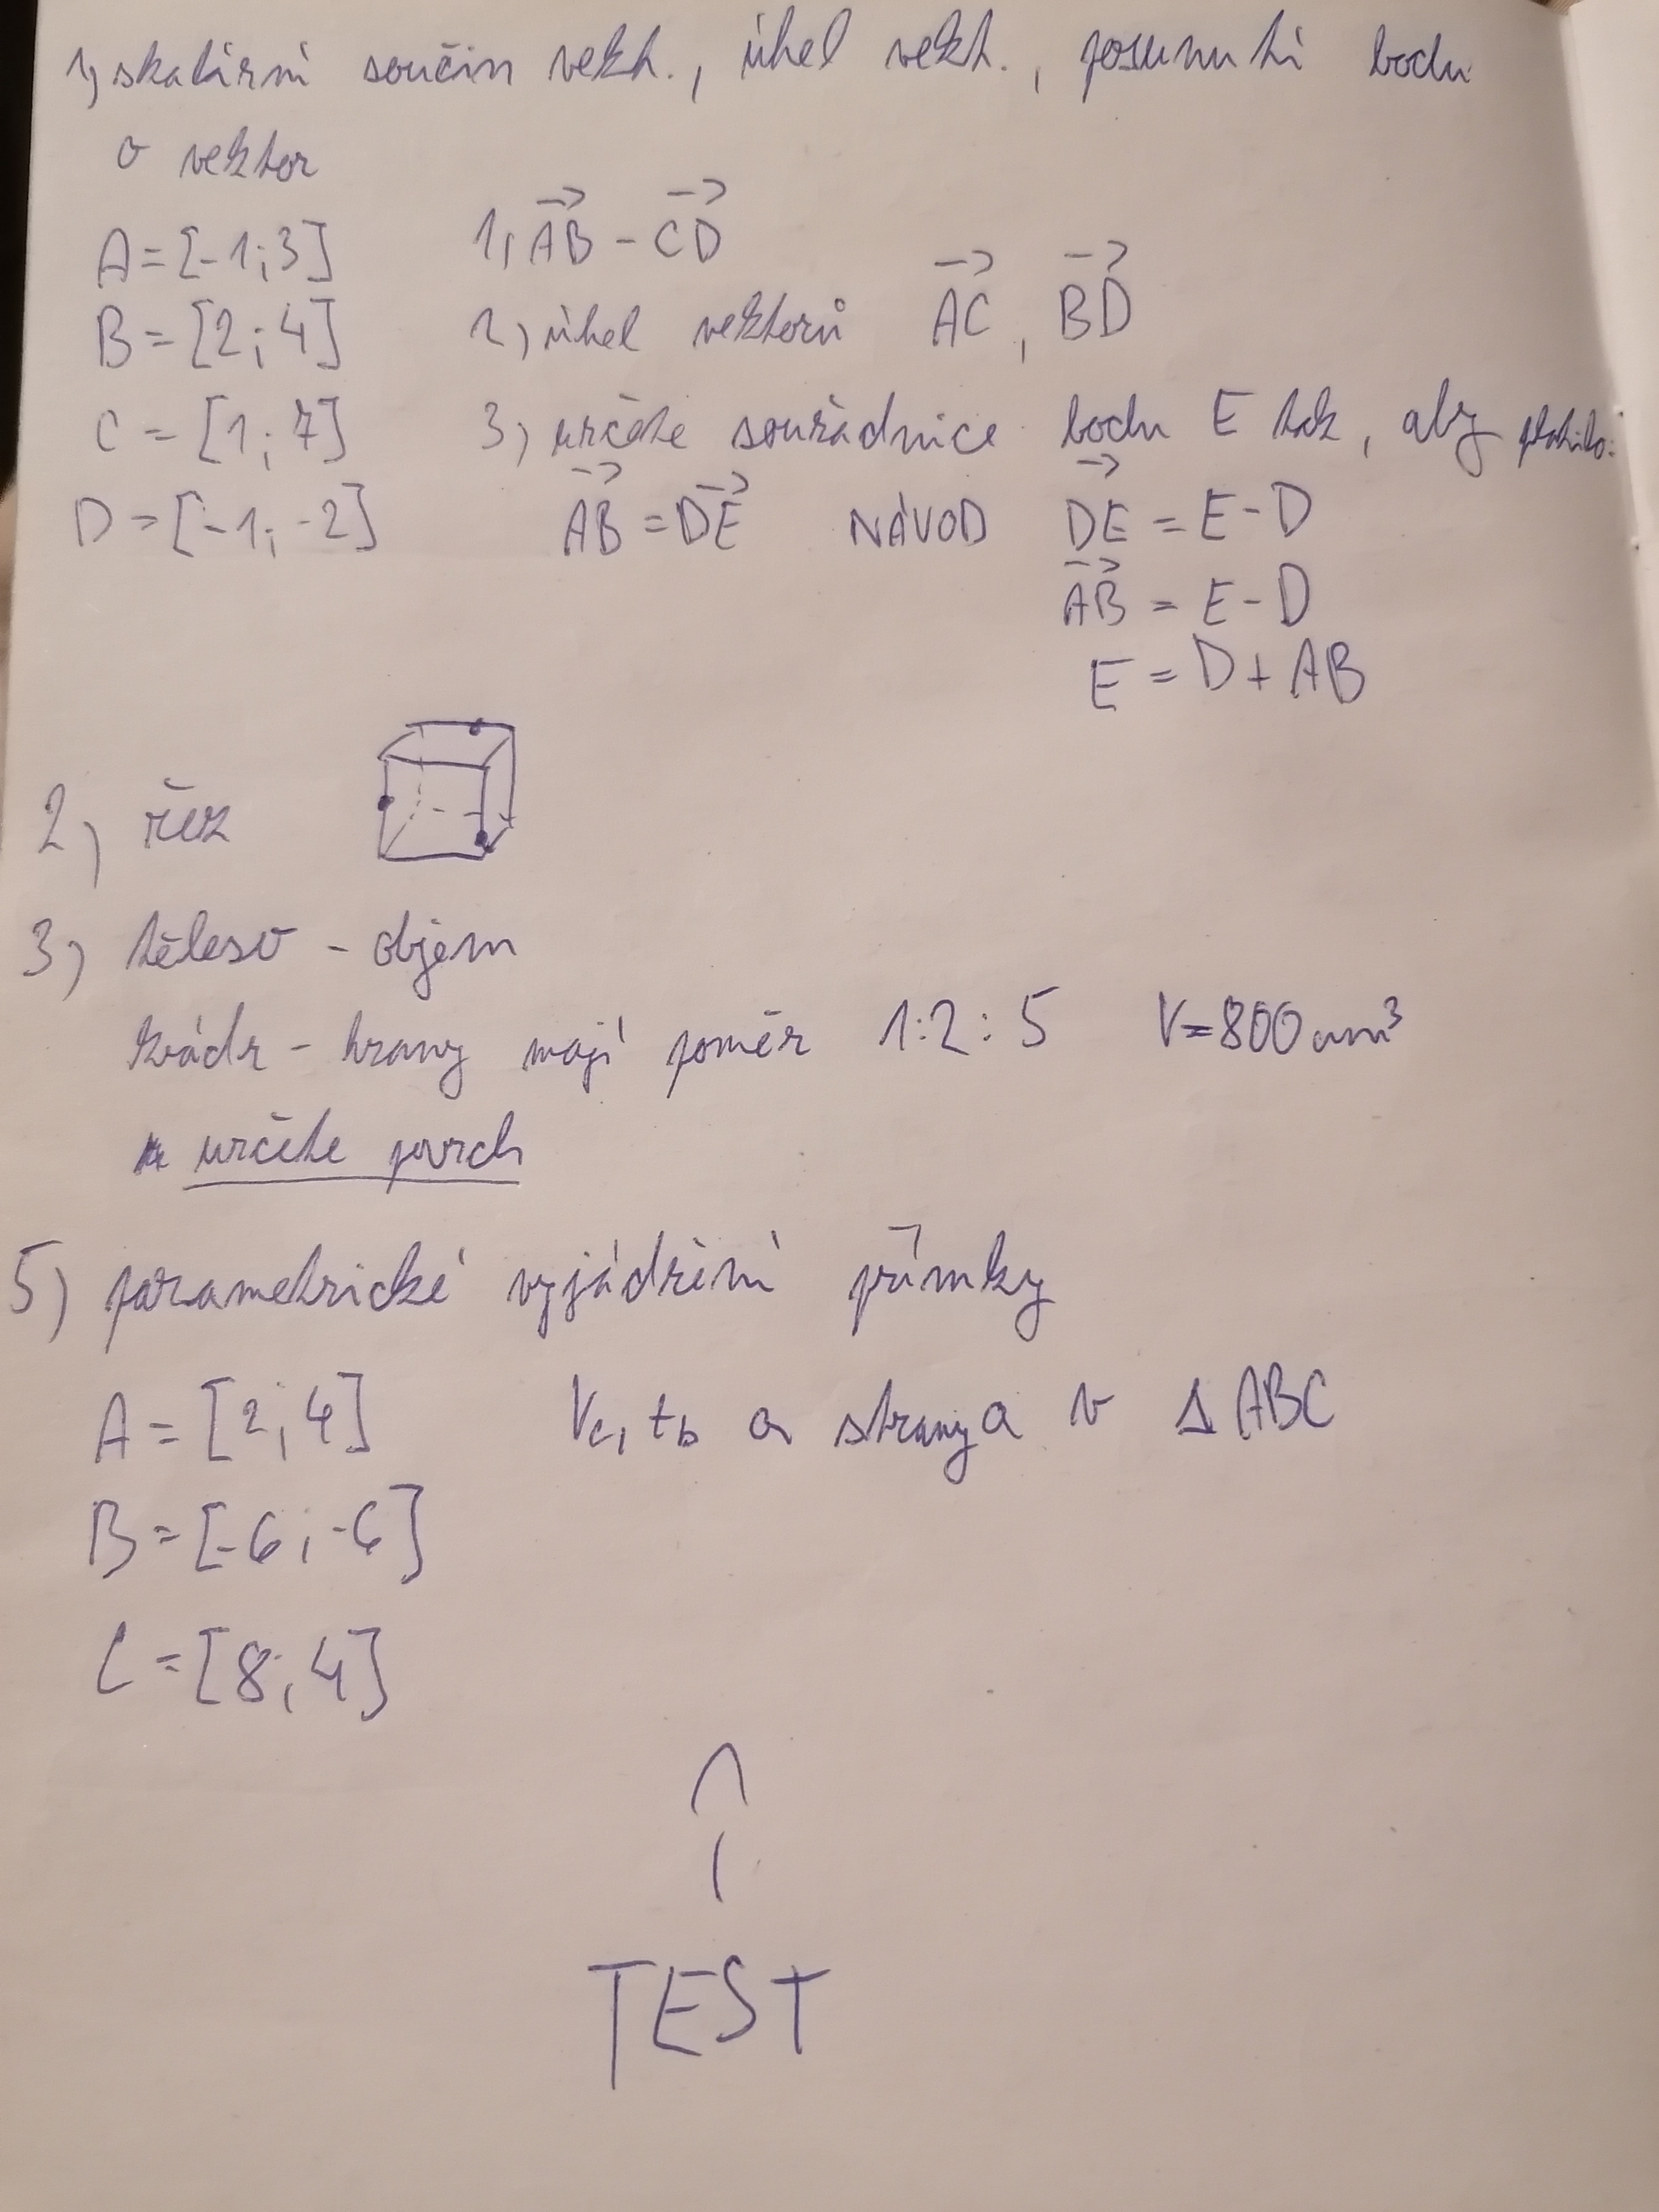 1) skalární součin vekt., úhel vekt., posunutí bodu
o vektor
A=[-1;3] 1, AB - CD
B=[2;4] 2) úhel vektorů AC, BD
C=[1;7] 3) určete souřadnice bodu E tak, aby platilo:
D=[-1;-2] AB=DE NÁVOD DE = E-D
AB = E-D
E = D+AB
2) řez
3) těleso - objem
kvádr - hrany mají poměr 1:2:5 V=800cm³
určete povrch
5) parametrické vyjádření přímky
A=[2;4] Vc, tb a strany a v Δ ABC
B=[-6;-6]
C=[8;4]
TEST